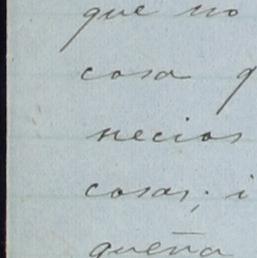 que no
cosa
necios
cosas; i
queña